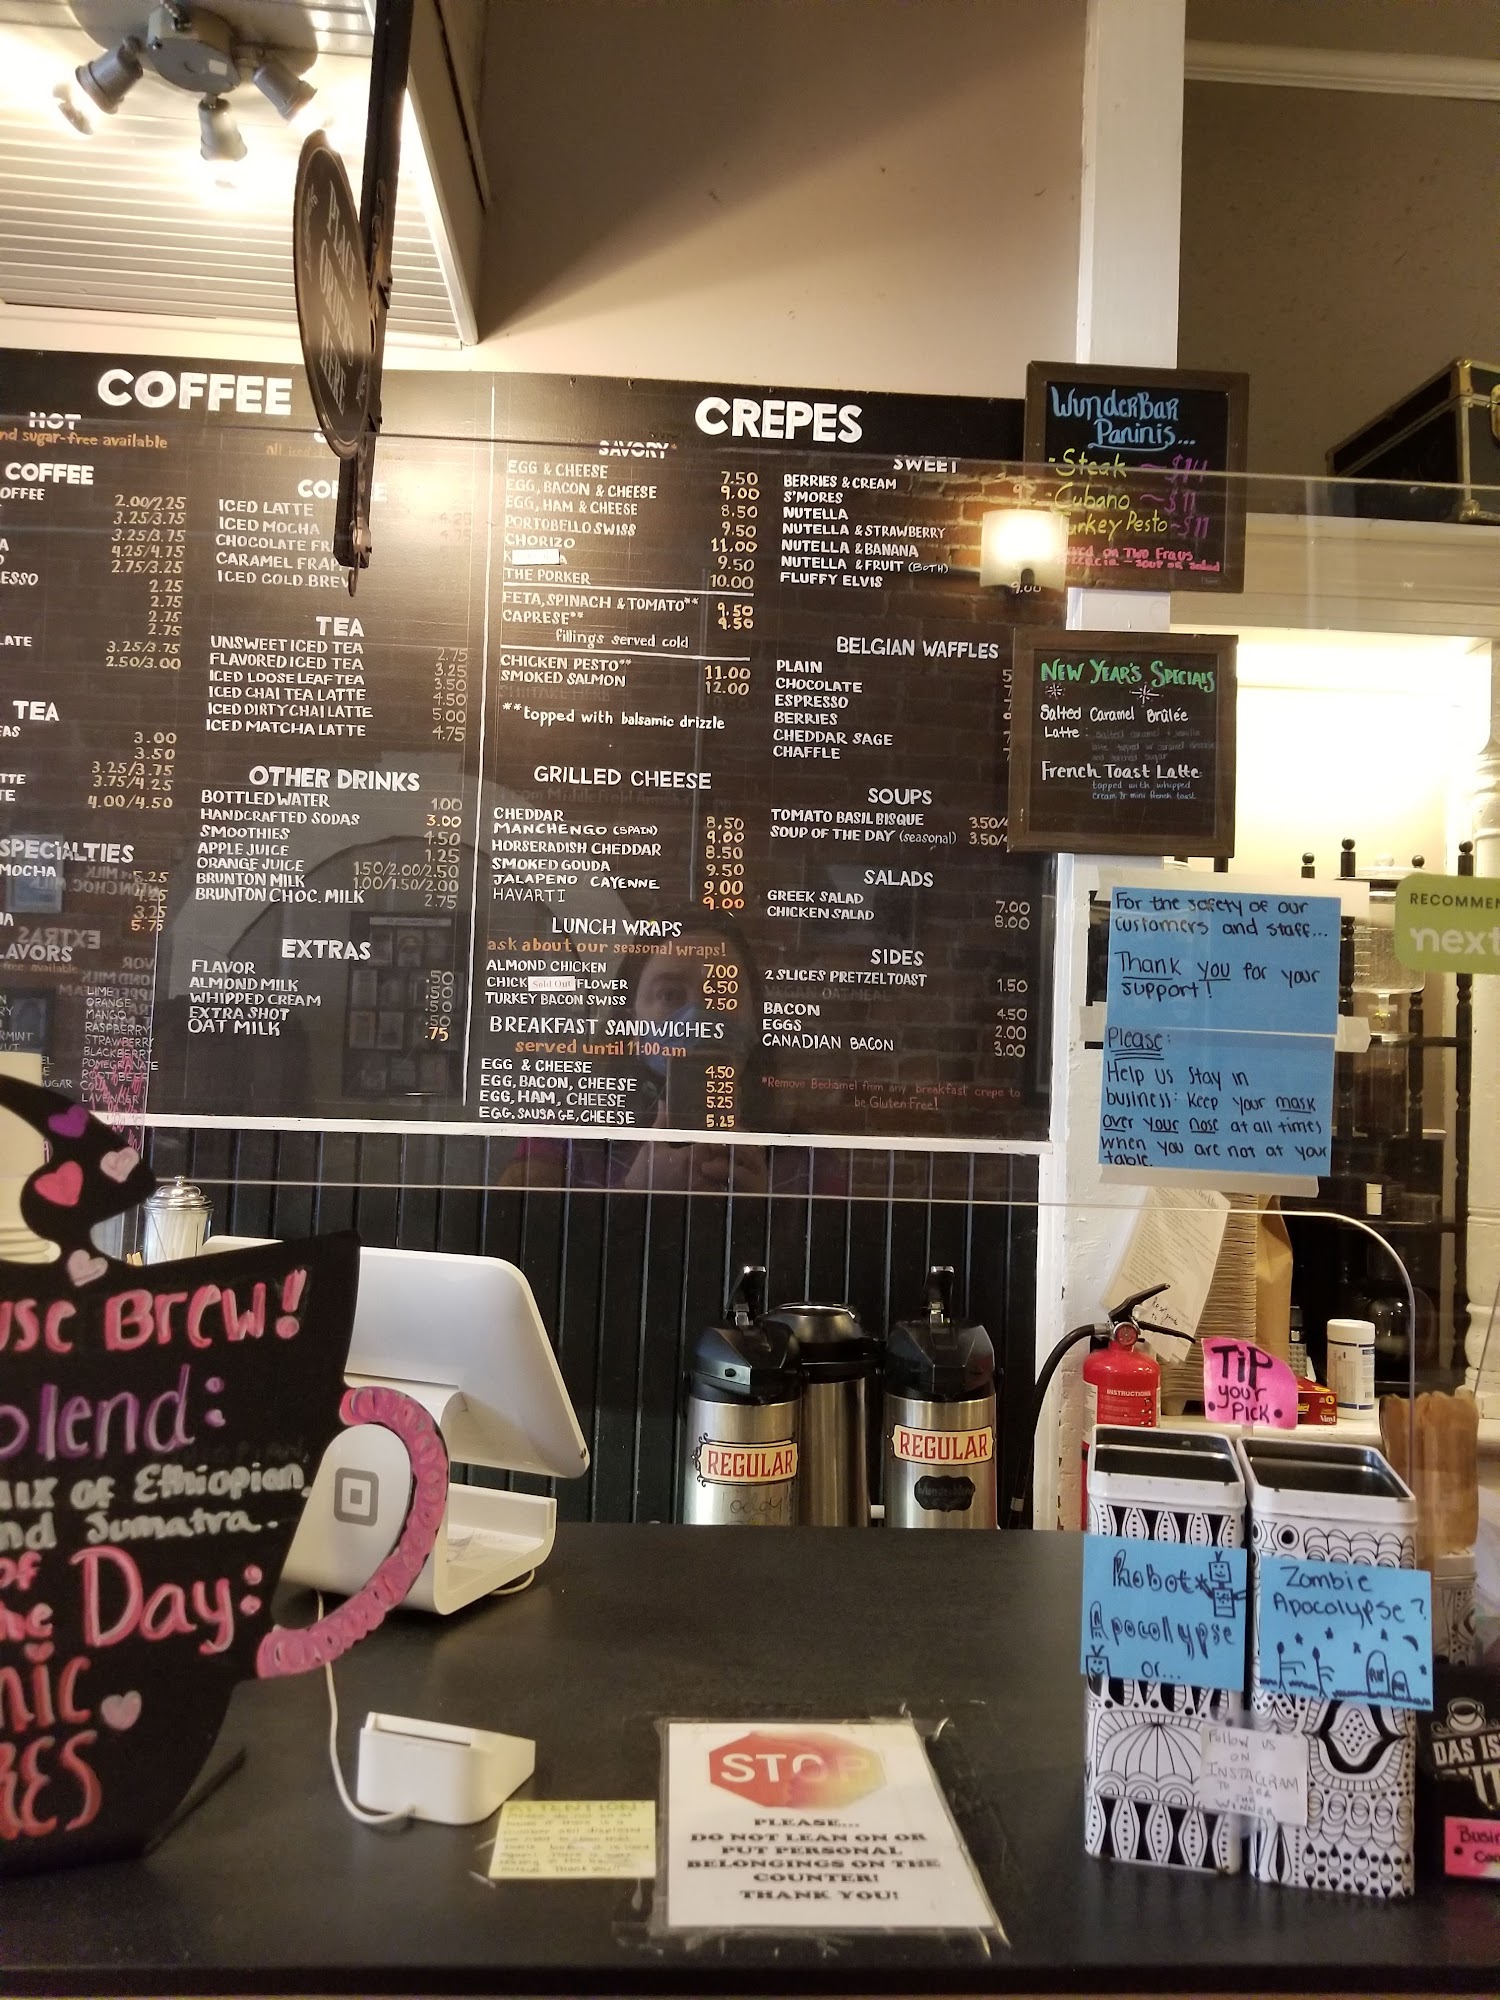 PLACE
ORDERS
HERE
COFFEE
HOT
nd sugar-free available
COFFEE
OFFEE
2.00/2.25
3.25/3.75
3.25/3.75
4.25/4.75
2.75/3.25
ESSO
2.25
2.75
2.75
2.75
LATE
3.25/3.75
2.50/3.00
TEA
EAS
3.00
3.50
3.25/3.75
TTE
3.75/4.25
TE
4.00/4.50
SPECIALTIES
MOCHA 5.25
4.25
3.25
5.75
LAVORS
free available
LIME
ORANGE
MANGO
RASPBERRY
STRAWBERRY
BLACKBERRY
POMEGRANATE
ROOT BEER
LAVENDER
ICED LATTE
ICED MOCHA
CHOCOLATE FR
CARAMEL FRAP
ICED COLD BREW
TEA
UNSWEET ICED TEA 2.75
FLAVORED ICED TEA 3.25
ICED LOOSE LEAF TEA 3.50
ICED CHAI TEA LATTE 4.50
ICED DIRTY CHAI LATTE 5.00
ICED MATCHA LATTE 4.75
OTHER DRINKS
BOTTLED WATER 1.00
HANDCRAFTED SODAS 3.00
SMOOTHIES 4.50
APPLE JUICE 1.25
ORANGE JUICE 1.50/2.00/2.50
BRUNTON MILK 1.00/1.50/2.00
BRUNTON CHOC. MILK 2.75
EXTRAS
FLAVOR .50
ALMOND MILK .50
WHIPPED CREAM .50
EXTRA SHOT .50
OAT MILK .75
CREPES
SAVORY*
EGG & CHEESE 7.50
EGG, BACON & CHEESE 9.00
EGG, HAM & CHEESE 8.50
PORTOBELLO SWISS 9.50
CHORIZO 11.00
9.50
THE PORKER 10.00
FETA, SPINACH & TOMATO** 9.50
CAPRESE** 9.50
fillings served cold
CHICKEN PESTO** 11.00
SMOKED SALMON 12.00
**topped with balsamic drizzle
GRILLED CHEESE
CHEDDAR 8.50
MANCHENGO (SPAIN) 9.00
HORSERADISH CHEDDAR 8.50
SMOKED GOUDA 9.50
JALAPENO CAYENNE 9.00
HAVARTI 9.00
LUNCH WRAPS
ask about our seasonal wraps!
ALMOND CHICKEN 7.00
CHICK Sold Out FLOWER 6.50
TURKEY BACON SWISS 7.50
BREAKFAST SANDWICHES
served until 11:00am
EGG & CHEESE 4.50
EGG, BACON, CHEESE 5.25
EGG, HAM, CHEESE 5.25
EGG, SAUSAGE, CHEESE 5.25
SWEET
BERRIES & CREAM
S'MORES
NUTELLA
NUTELLA & STRAWBERRY
NUTELLA & BANANA
NUTELLA & FRUIT (BOTH)
FLUFFY ELVIS 9.00
BELGIAN WAFFLES
PLAIN
CHOCOLATE
ESPRESSO
BERRIES
CHEDDAR SAGE
CHAFFLE
SOUPS
TOMATO BASIL BISQUE 3.50/4
SOUP OF THE DAY (seasonal) 3.50/4
SALADS
GREEK SALAD 7.00
CHICKEN SALAD 8.00
SIDES
2 SLICES PRETZEL TOAST 1.50
BACON 4.50
EGGS 2.00
CANADIAN BACON 3.00
*Remove Bechamel from any breakfast crepe to
be Gluten Free!
WUNDERBAR
PANINIS...
Steak ~ $14
Cubano ~ $11
Turkey Pesto ~ $11
NEW YEAR'S SPECIALS
Salted Caramel Brûlée
Latte:
French Toast Latte:
topped with whipped
cream & mini french toast
For the safety of our
customers and staff...
Thank you for your
support!
Please:
Help us stay in
business: Keep your mask
over your nose at all times
when you are not at your
table.
RECOMMEN
next
use BREW!
Blend:
mix of Ethiopian,
and Sumatra.
of
the Day:
REGULAR
Today's
REGULAR
Wunderblend
INSTRUCTIONS
TIP
your
PICK
Robot
Apocolypse
or...
Zombie
Apocolypse?
FOLLOW US
ON
INSTAGRAM
TO SEE
THE
WINNER
DAS IS
ATTENTION:
STOP
PLEASE....
DO NOT LEAN ON OR
PUT PERSONAL
BELONGINGS ON THE
COUNTER!
THANK YOU!